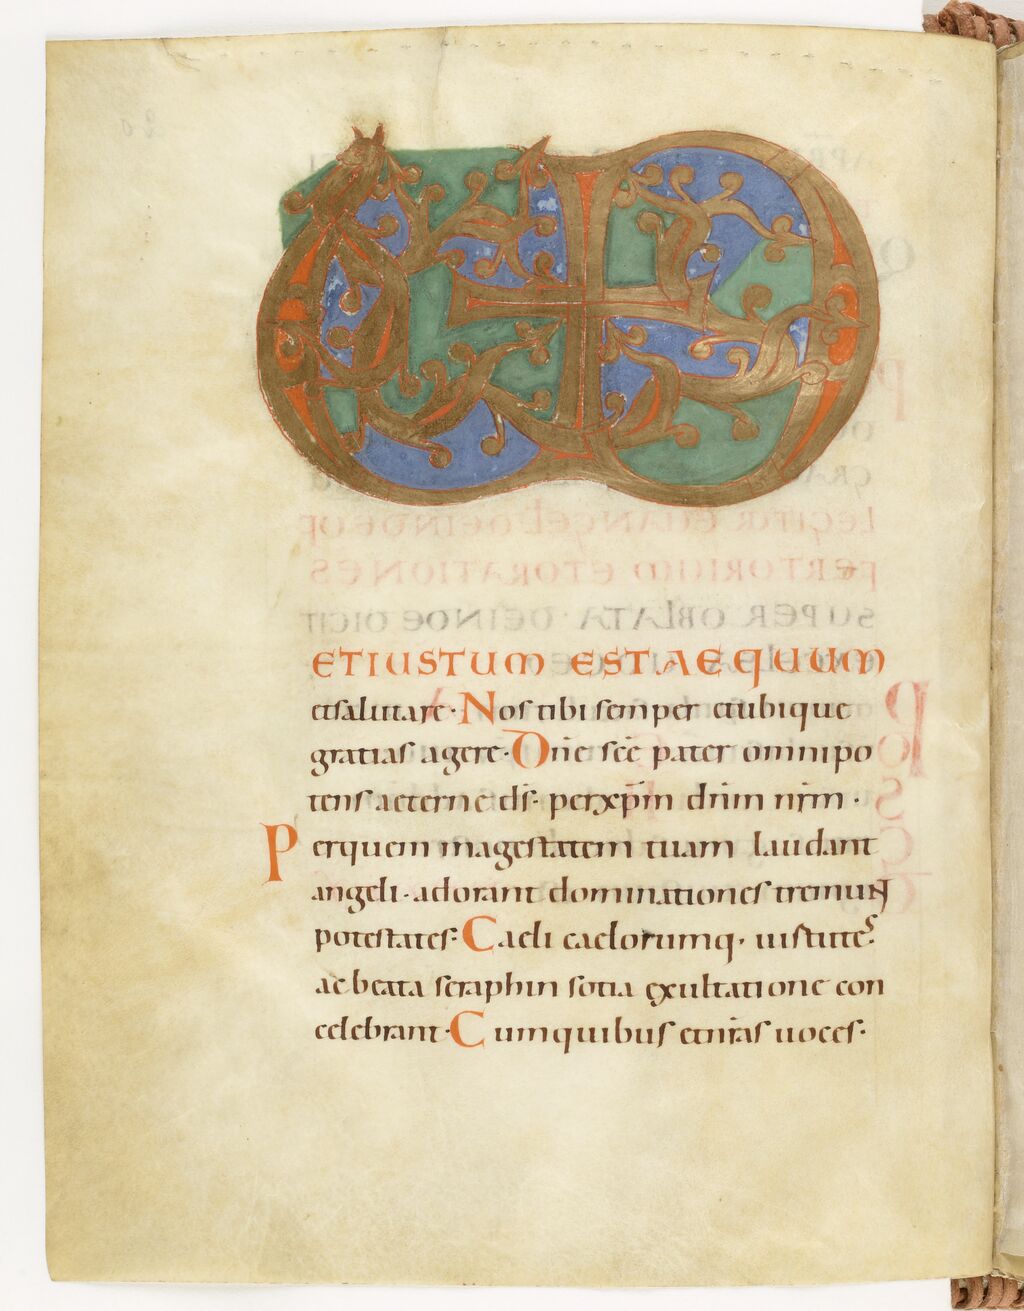 VD
ETIUSTUM ESTAEQUUM
etsalutare· Nos tibi semper etubique
gratias agere· Dn̄e sc̄e pater omnipo
tens aeterne d̄s· perxp̄m dn̄m nr̄m·
Perquem magestatem tuam laudant
angeli· adorant dominationes tremunt
potestates· Caeli caelorumq· uirtutes
acbeata seraphin sotia exultatione con
celebrant· Cumquibus etnr̄as uoces·